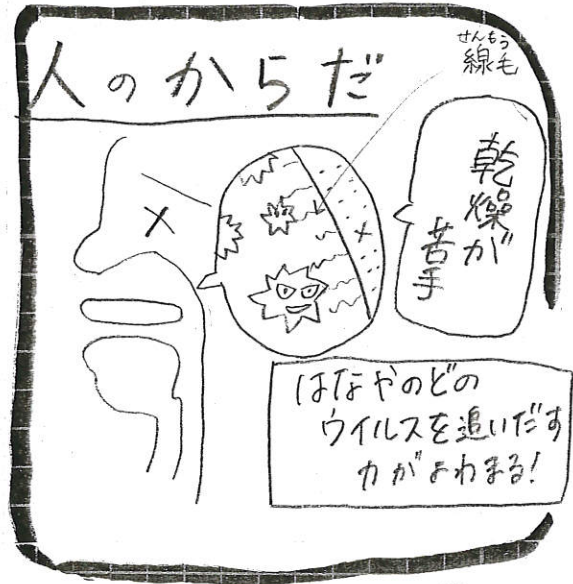 人のからだ
せんもう
線毛
乾燥が
苦手
はなやのどの
ウイルスを追いだす
力がよわまる!